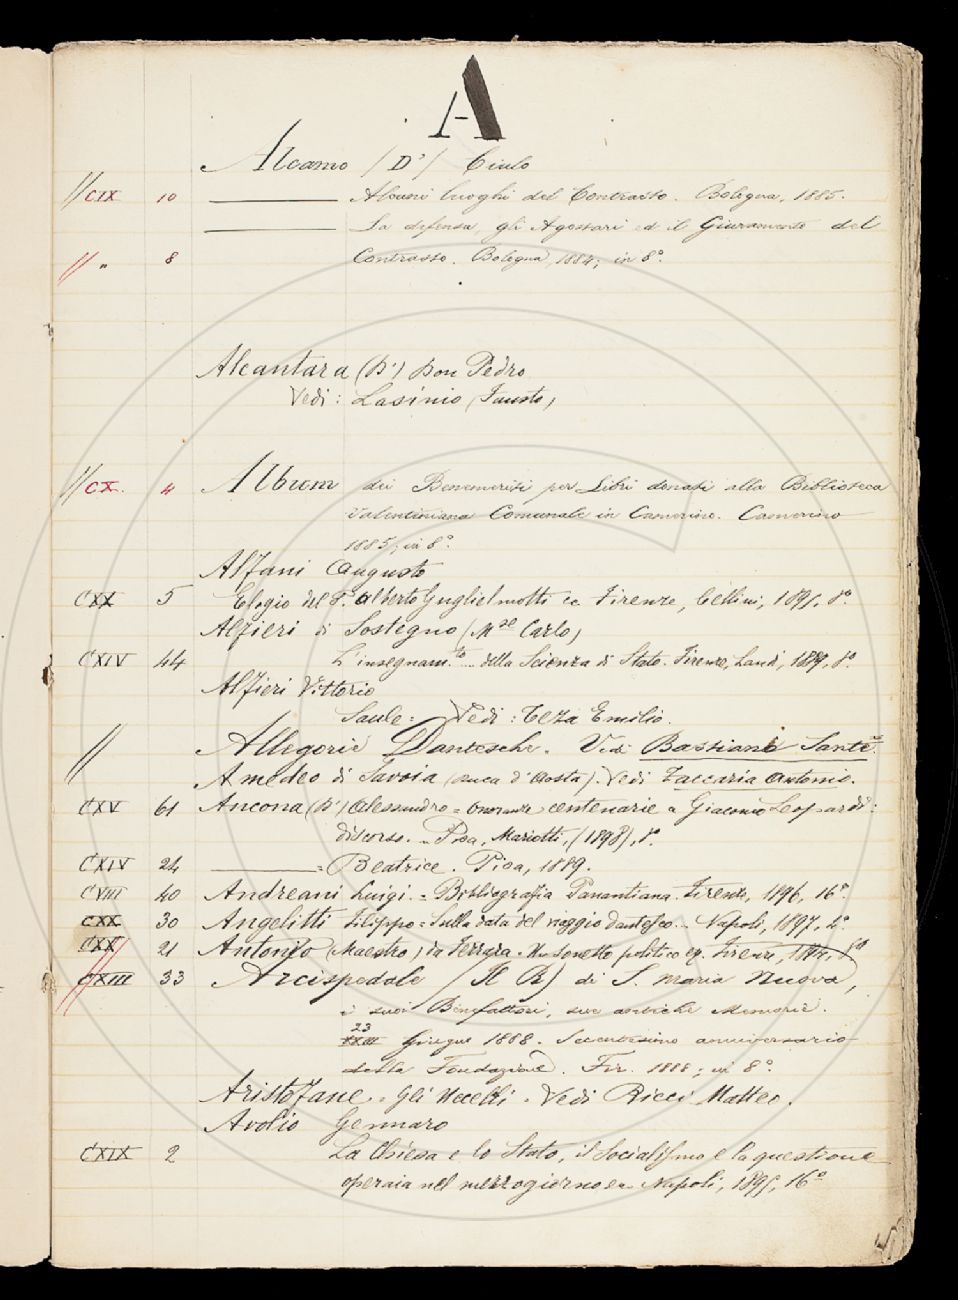 A
Alcamo (D') Ciulo
// CIX 10 Alcuni luoghi del Contrasto. Bologna, 1885.
La difensa, gli Agostari ed il Giuramento del
// " 8 Contrasto. Bologna, 1884; in 8°.
Alcantara (D') Don Pedro
Vedi: Lasinio (Fausto)
// CX. 4 Album dei Benemeriti per Libri donati alla Biblioteca
Valentiniana Comunale in Camerino. Camerino
1885; in 8°.
Alfani Augusto
CXX 5 Elogio del P. Alberto Guglielmotti ec. Firenze, Cellini, 8°.
Alfieri di Sostegno (M.se Carlo)
CXIV 44 L'insegnam.to ... della Scienza di Stato. Firenze, Landi, 1889, 8°.
Alfieri Vittorio
Saule = Vedi: Teza Emilio.
// Allegorie Dantesche. Vedi Bassiani Sante.
Amedeo di Savoia (Duca d'Aosta). Vedi Zaccaria Antonio.
CXV 61 Ancona (D') Alessandro = Onoranze centenarie a Giacomo Leopardi:
discorso. Pisa, Mariotti, (1898), 8°.
CXIV 24 = Beatrice. Pisa, 1889.
CVIII 40 Andreani Luigi. = Bibliografia Panantiana. Firenze, 1896, 16°
CXX 30 Angelitti Filippo = Sulla data del viaggio dantesco... Napoli, 1897, 4°.
CXX 21 Antonio (Maestro) da Ferrara. Un sonetto politico ec. Firenze,
CXIII 33 Arcispedale (Il R) di S. Maria Nuova,
i suoi Benefattori, sue antiche Memorie.
23
XXIII Giugno 1888. Secentesimo anniversario
della Fondazione. Fir. 1888; in 8°
Aristofane. Gli Uccelli. Vedi Ricci Matteo.
Avolio Gennaro
CXIX 2 La Chiesa e lo Stato, il socialismo e la questione
operaia nel mezzogiorno ec. Napoli, 16°